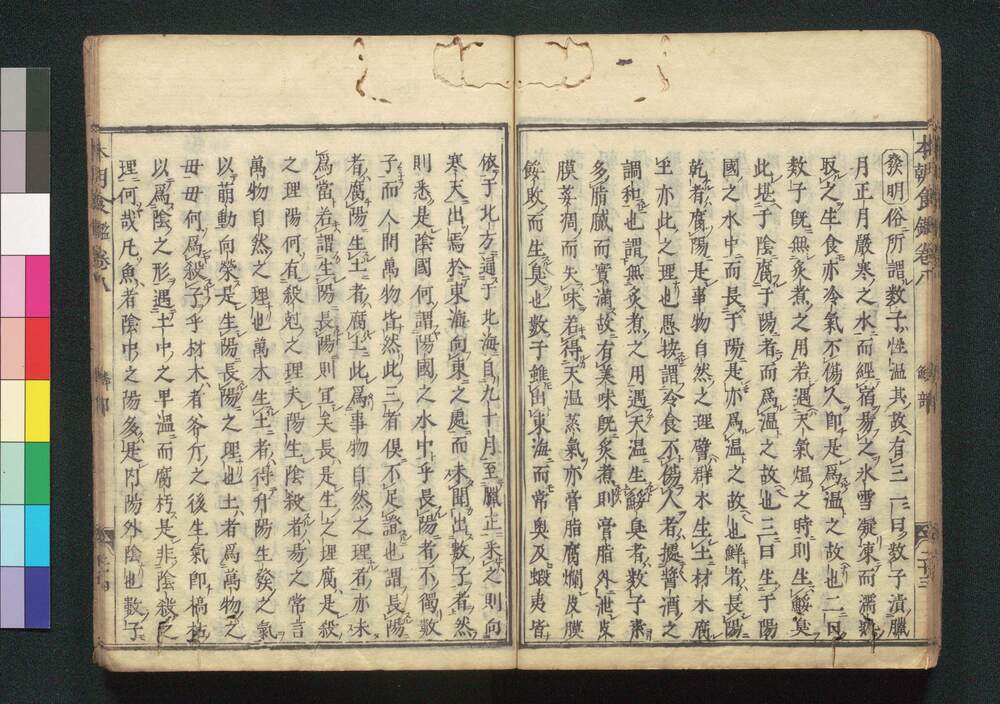 本朝食鑑卷八
鱗部
二十三
發明俗所謂數子性温其故有三一曰數子漬臘
月正月嚴寒之水而經宿易之氷雪凝凍而濡熟
取之生食亦冷氣不傷人即是爲温之故也二曰
數子既無炙煮之用若遇天氣煴之時則生鮾臭
此堪于陰腐子陽者而爲温之故也三曰生于陽
國之水中而長于陽是亦爲温之故也鮮者長陽
乾者腐陽是事物自然之理譬群木生土材木腐
土亦此之理也愚按謂冷食不傷人者據醬酒之
調和也謂無炙煮之用遇天温生鮾臭者數子素
多脂膩而實滿故有美味既炙煮則膏脂外泄皮
膜萎凋而失味若得天温蒸氣亦膏脂腐爛皮膜
餒敗而生臭也數子雖由東海而常奥及蝦夷皆
依于北方通于北海自九十月至臘正采之則向
寒天出焉於東海向東之處而未聞出數子者然
則悉是陰國何謂陽國之水中乎長陽者不獨數
子而人間萬物皆然此三者俱不足論也謂長陽
者腐陽生土者腐土此爲事物自然之理者亦未
爲當若謂生陽長陽則宜矣長是生之理腐是殺
之理陽何有殺尅之理夫陽生陰殺者易之常言
萬物自然之理也萬木生土者得升陽生發之氣
以萠動向榮是生陽長陽之理也土者爲萬物之
毋毋何爲殺子乎材木者斧斤之後生氣即槁枯
以爲陰之形遇土中之卑温而腐朽是非陰殺之
理何哉凡魚者陰中之陽多是内陽外陰也數子
本朝食鑑卷八
鱗部
二十四